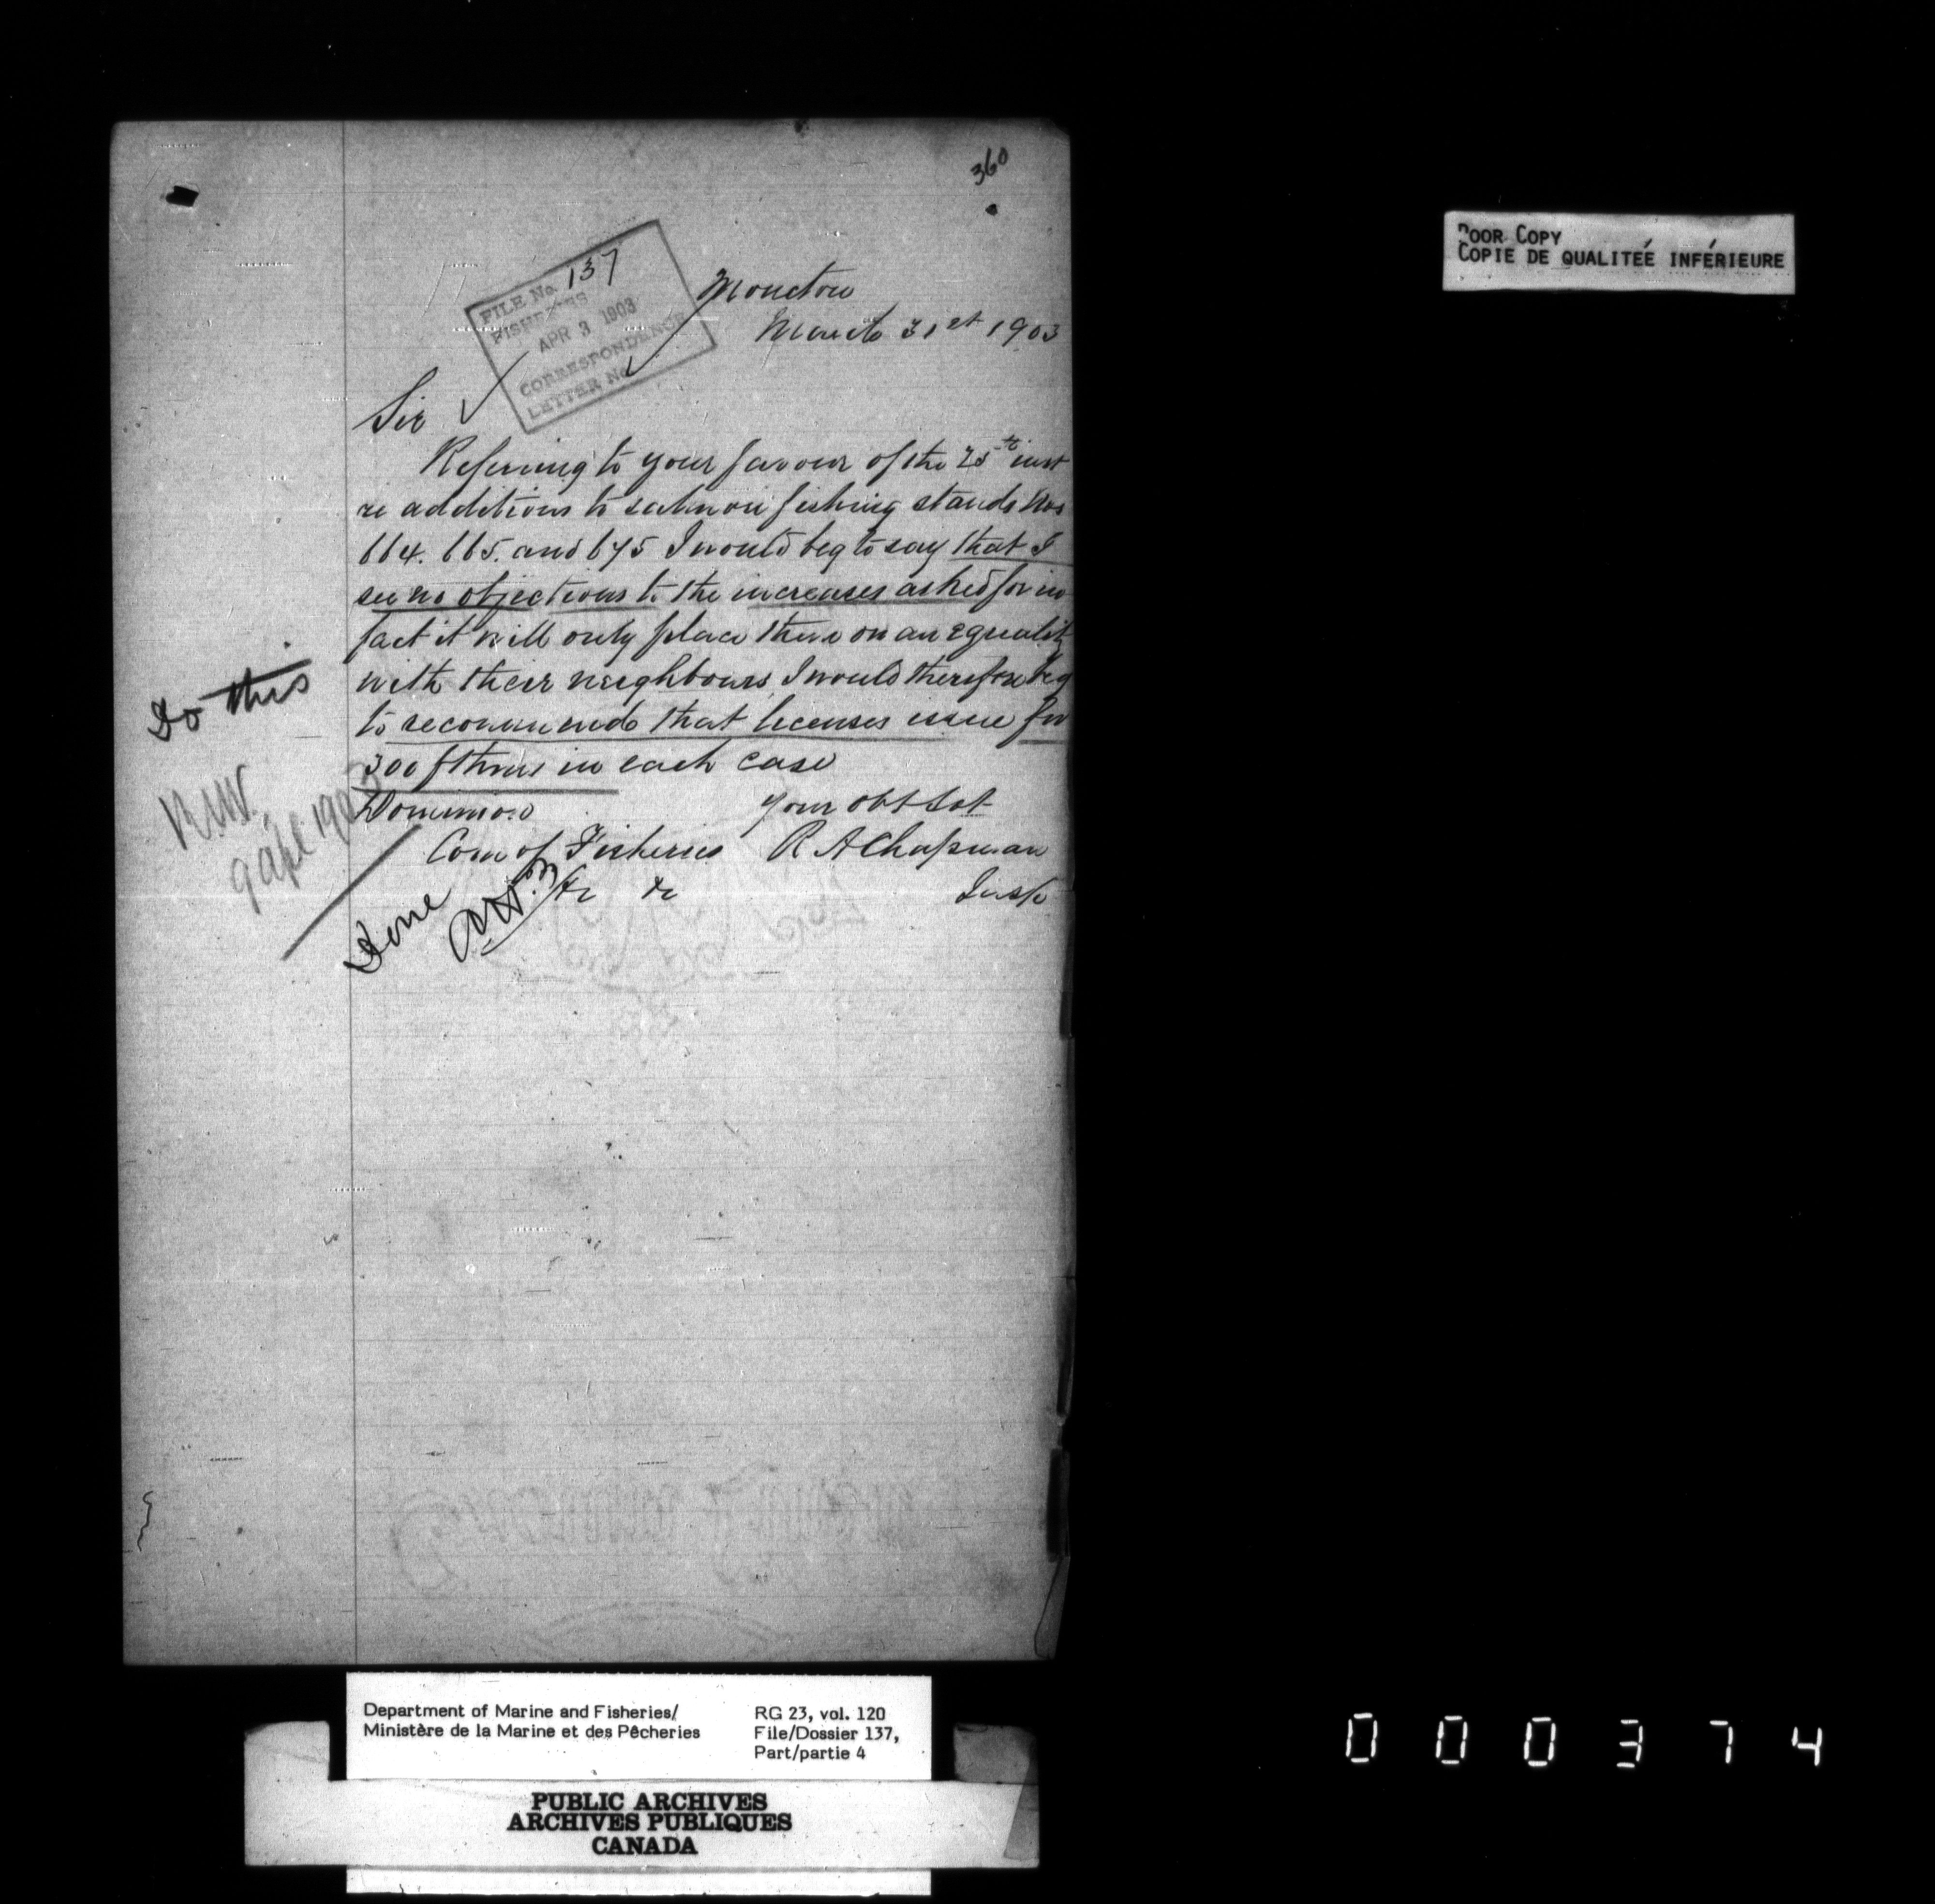 360
FILE No. 137
FISHERIES
APR 3 1903
CORRESPONDENCE
LETTER No.
Moncton
March 31st 1903
Sir
Referring to your favour of the 25th inst
re additions to salmon fishing stands Nos
664. 665. and 675 I would beg to say that I
see no objections to the increases asked for in
fact it will only place them on an equality
with their neighbours I would therefore beg
to recommend that licenses issue for
300 fthms in each case
Dominion
your obt Svt
Com of Fisheries
R A Chapman
&c &c
Insp
Do this
9 apl. 1903
Done
POOR COPY
COPIE DE QUALITEÉ INFÉRIEURE
Department of Marine and Fisheries/
Ministère de la Marine et des Pêcheries
RG 23, vol. 120
File/Dossier 137,
Part/partie 4
PUBLIC ARCHIVES
ARCHIVES PUBLIQUES
CANADA
000374